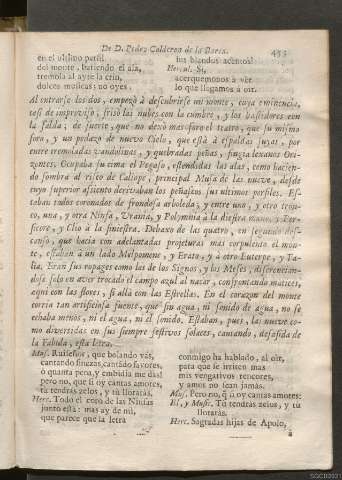 De D. Pedro Calderon de la Barca.
453
en el ultimo perfil
del monte, batiendo el ala,
tremola al ayre la crin,
dulces musicas; no oyes
ha blandos acentos!
Hercul. Si,
acerquemonos à vèr
lo que llegamos à oir.
Al entrarse los dos, empezò à descubrirse un monte, cuya eminencia,
casi de improviso, frisò las nubes con la cumbre, y los bastidores con
la falda; de suerte, que no dexò mas foro al teatro, que su mismo
foro, y un pedazo de nuevo Cielo, que està à espaldas suyas, por
entre tremoladas vandolinas, y quebradas peñas, fingia lexanos Ori-
zontes. Ocupaba su cima el Pegaso, estendidas las alas, como hacien-
do sombra al risco de Caliope, principal Musa de las nueve, desde
cuyo superior asiento derivaban los peñascos sus ultimos perfiles. Es-
taban todos coronados de frondosa arboleda, y entre una, y otro tron-
co, una, y otra Ninfa, Urania, y Polymnia à la diestra mano, y Ter-
sicore, y Clio à la siniestra. Debaxo de las quatro, en segundo des-
censo, que hacia con adelantadas projeturas mas corpulento el mon-
te, estaban à un lado Melpomene, y Erato, y à otro Euterpe, y Ta-
lia. Eran sus ropages como los de los Signos, y los Meses, diferencian-
dose solo en aver trocado el campo azul al nacar, confrontando matices,
aqui con las flores, si allà con las Estrellas. En el corazon del monte
corria tan artificiosa fuente, que sin agua, ni sonido de agua, no se
echaba menos, ni el agua, ni el sonido. Estaban, pues, las nueve co-
mo divertidas en sus siempre festivos solaces, cantando, desasida de
la Fabula, esta letra.
Mus. Ruiseñor, que bolando vàs,
cantando finezas, cantado favores,
ò quanta pena, y embidia me dàs!
pero no, que si oy cantas amores,
tù tendràs zelos, y tù lloraràs.
Herc. Todo el coro de las Ninfas
junto està: mas ay de mi,
que parece que la letra
conmigo ha hablado, al oìr,
para que se irriten mas
mis vengativos rencores,
y amos no sean jamàs.
Mus. Pero no, q̃ si oy cantas amores:
El, y Music. Tù tendràs zelos, y tù
lloraràs.
Herc. Sagradas hijas de Apolo,
à